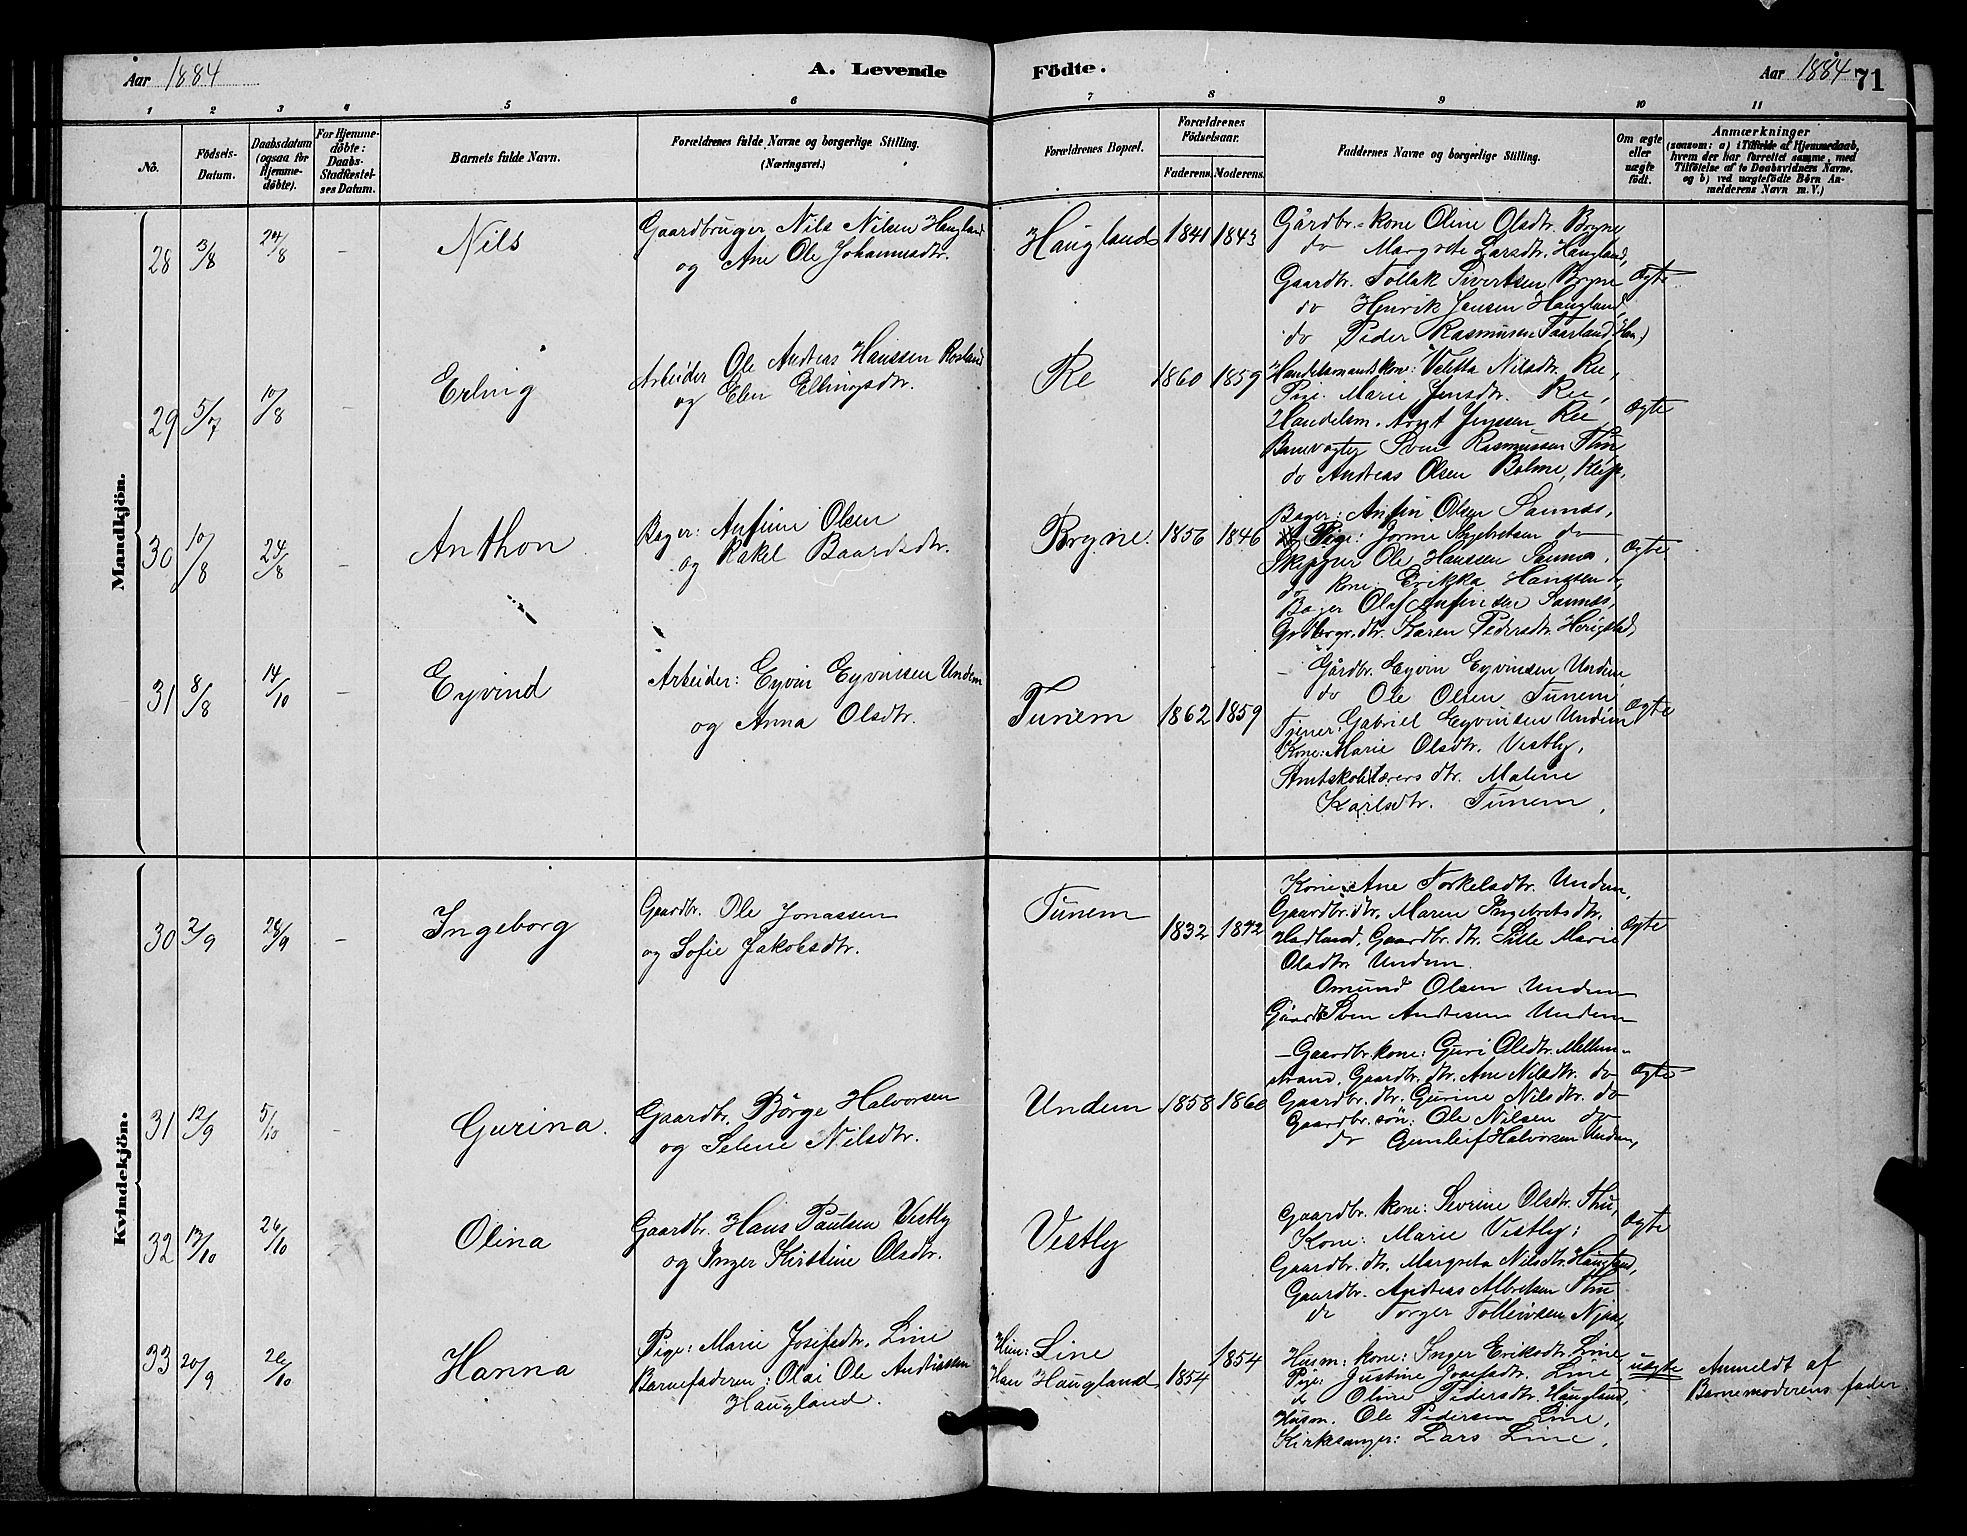 Aar 1884
A. Levende
Födte.
Aar 1884
71
1 2 3 4 5 6 7 8 9 10 11
No.
Födsels-
Datum.
Daabsdatum
(ogsaa for
Hjemme-
döbte).
For Hjemme-
döbte:
Daabs-
Stadfæstel-
ses Datum.
Barnets fulde Navn.
Forældrenes fulde Navne og borgerlige Stilling.
(Næringsvei.)
Forældrenes Bopæl.
Forældrenes
Födselsaar.
Faderens.
Moderens.
Faddernes Navne og borgerlige Stilling.
Om ægte
eller
uægte
födt.
Anmærkninger
(saasom: a) i Tilfælde af Hjemmedaab,
hvem der har forrettet samme, med
Tilföielse af to Daabsvidners Navne.
og b) ved uægtefödte Börn An-
melderens Navn m. V.)
Mandkjön.
28 3/8 24/8 - Nils
Gaardbruger Nils Nilsen Haugland
og Ane Ole Johannesdtr.
Haugland 1841 1843
Gårdbr. kone Oline Olsdtr. Bryne
do Margrete Larsdtr. Haugland,
Gaardbr. Tollak Sivertsen Bryne
do Henrik Jensen Haugland
do Peder Rasmusen Taarland
Ægte
29 5/7 10/8 - Erling
Arbeider Ole Andreas Hanssen Rosland
og Elen Ellingsdtr.
Re 1860 1859
Handelsmands kone: Veletta Nilsdtr. Ree,
Pige Marie Jensdtr. Ree,
Handelsm. Jenssen Ree
Banevogter Sven Rasmussen Thu
do Andreas Olsen Klep.
Ægte
30 10/8 24/8 - Anthon
Bager: Anfinn Olsen
og Rakel Baardsdtr.
Bryne. 1856 1846
Bager: Anfin Olsen
Pige: do
Skipper Ole Hanssen
do kone: Erikka Hanssen
Bager Olaf Anfindsen
Karen Pedersdtr.
Ægte
31 8/8 14/10 - Eyvind
Arbeider: Eyvin Eyvinsen Undem
og Anna Olsdtr.
Tunem 1862 1859
- Gårdbr. Eyvin Eyvinsen Undem
do Ole Olsen Tunem
Tjener: Gabriel Eyvinsen Undem
Kone: Marie Olsdtr. Vestly,
Amtskolelærers dtr. Malene
Karlsdtr. Tunem,
Ægte
Kvindekjön.
30 2/9 28/9 - Ingeborg
Gaardbr. Ole Jonassen
og Sofie Jakobsdtr.
Tunem 1832 1842
Kone: Ane Torkelsdtr. Undem,
Gaardbr. dtr. Maren Ingebretsdtr.
Hadland, Gaardbr. dtr. Sille Marie
Olsdtr Undem.
Omund Olsen Undem
Gaardb Sven Andresen Undem
Ægte
31 12/9 5/10 - Gurina.
Gaardbr. Börge Halvorsen
og Selene Nilsdtr.
Undem 1858 1860
- Gaardbr. kone: Guri Olsdtr. Mellem-
strand, Gaardbr. dtr. Ane Nilsdtr. do
Gaardbr. dtr. Gurine Nilsdtr. do
Gaardbr. sön: Ole Nilsen do
do Gunleif Halvorsen Undem,
Ægte
32 17/10 26/10 - Olina
Gaardbr. Hans Paulsen Vestly
og Inger Kirstine Olsdtr.
Vestly
Gaardbr. kone: Sevrine Olsdtr. Thu,
Kone: Marie Vestly;
Gaardbr. dtr. Margreta Nilsdtr. Haugland,
Gaardbr. Andreas Albretsen Thu
do Torger Tollevsen Njaa,
Ægte
33 20/9 26/10 Hanna
Pige: Marie Josefsdtr. Line
Barnefaderen: Olai Ole Andreassen
Haugland.
Hun: Line
Han Haugland 1854 1854
Husm. kone: Inger Eriksdtr. Line
Pige: Justine Josefsdtr. Line,
do Oline Pedersdtr. Haugland,
Husm. Ole Pedersen Line,
Kirkesanger: Lars Line,
uægte
Anmeldt af
Barnemoderens fader.